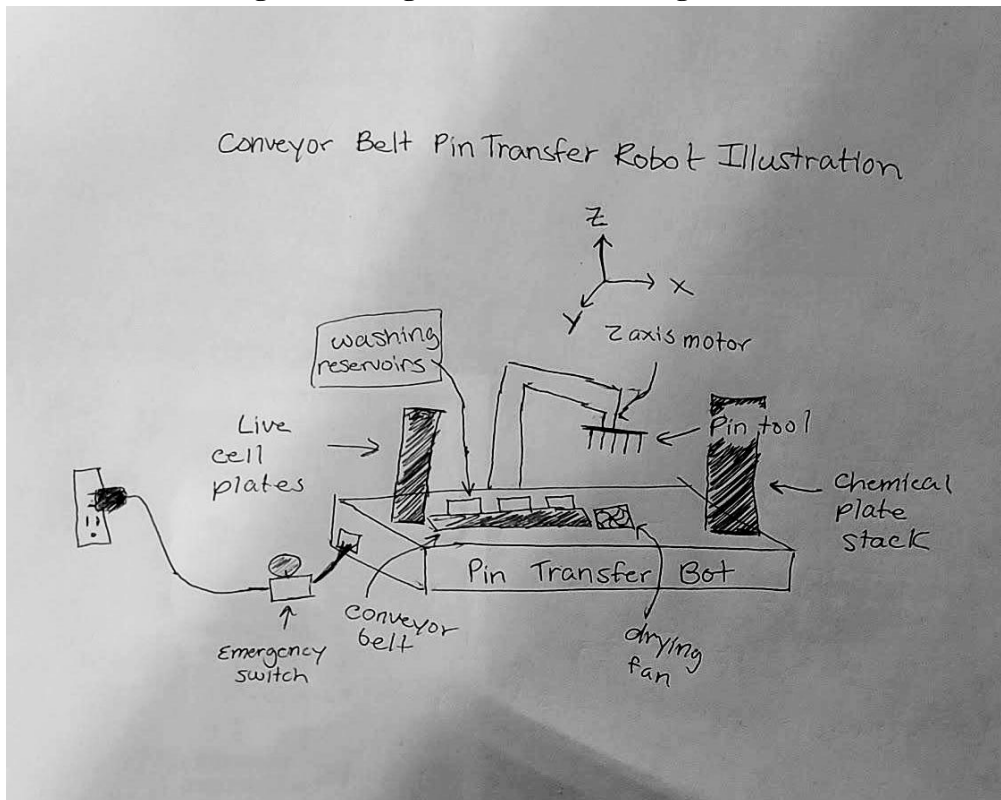 Conveyor Belt Pin Transfer Robot Illustration
Z
X
Y
Z axis motor
washing
reservoirs
Pin tool
Live
cell
plates
Chemical
plate
stack
Pin Transfer Bot
Conveyor
belt
drying
fan
Emergency
switch